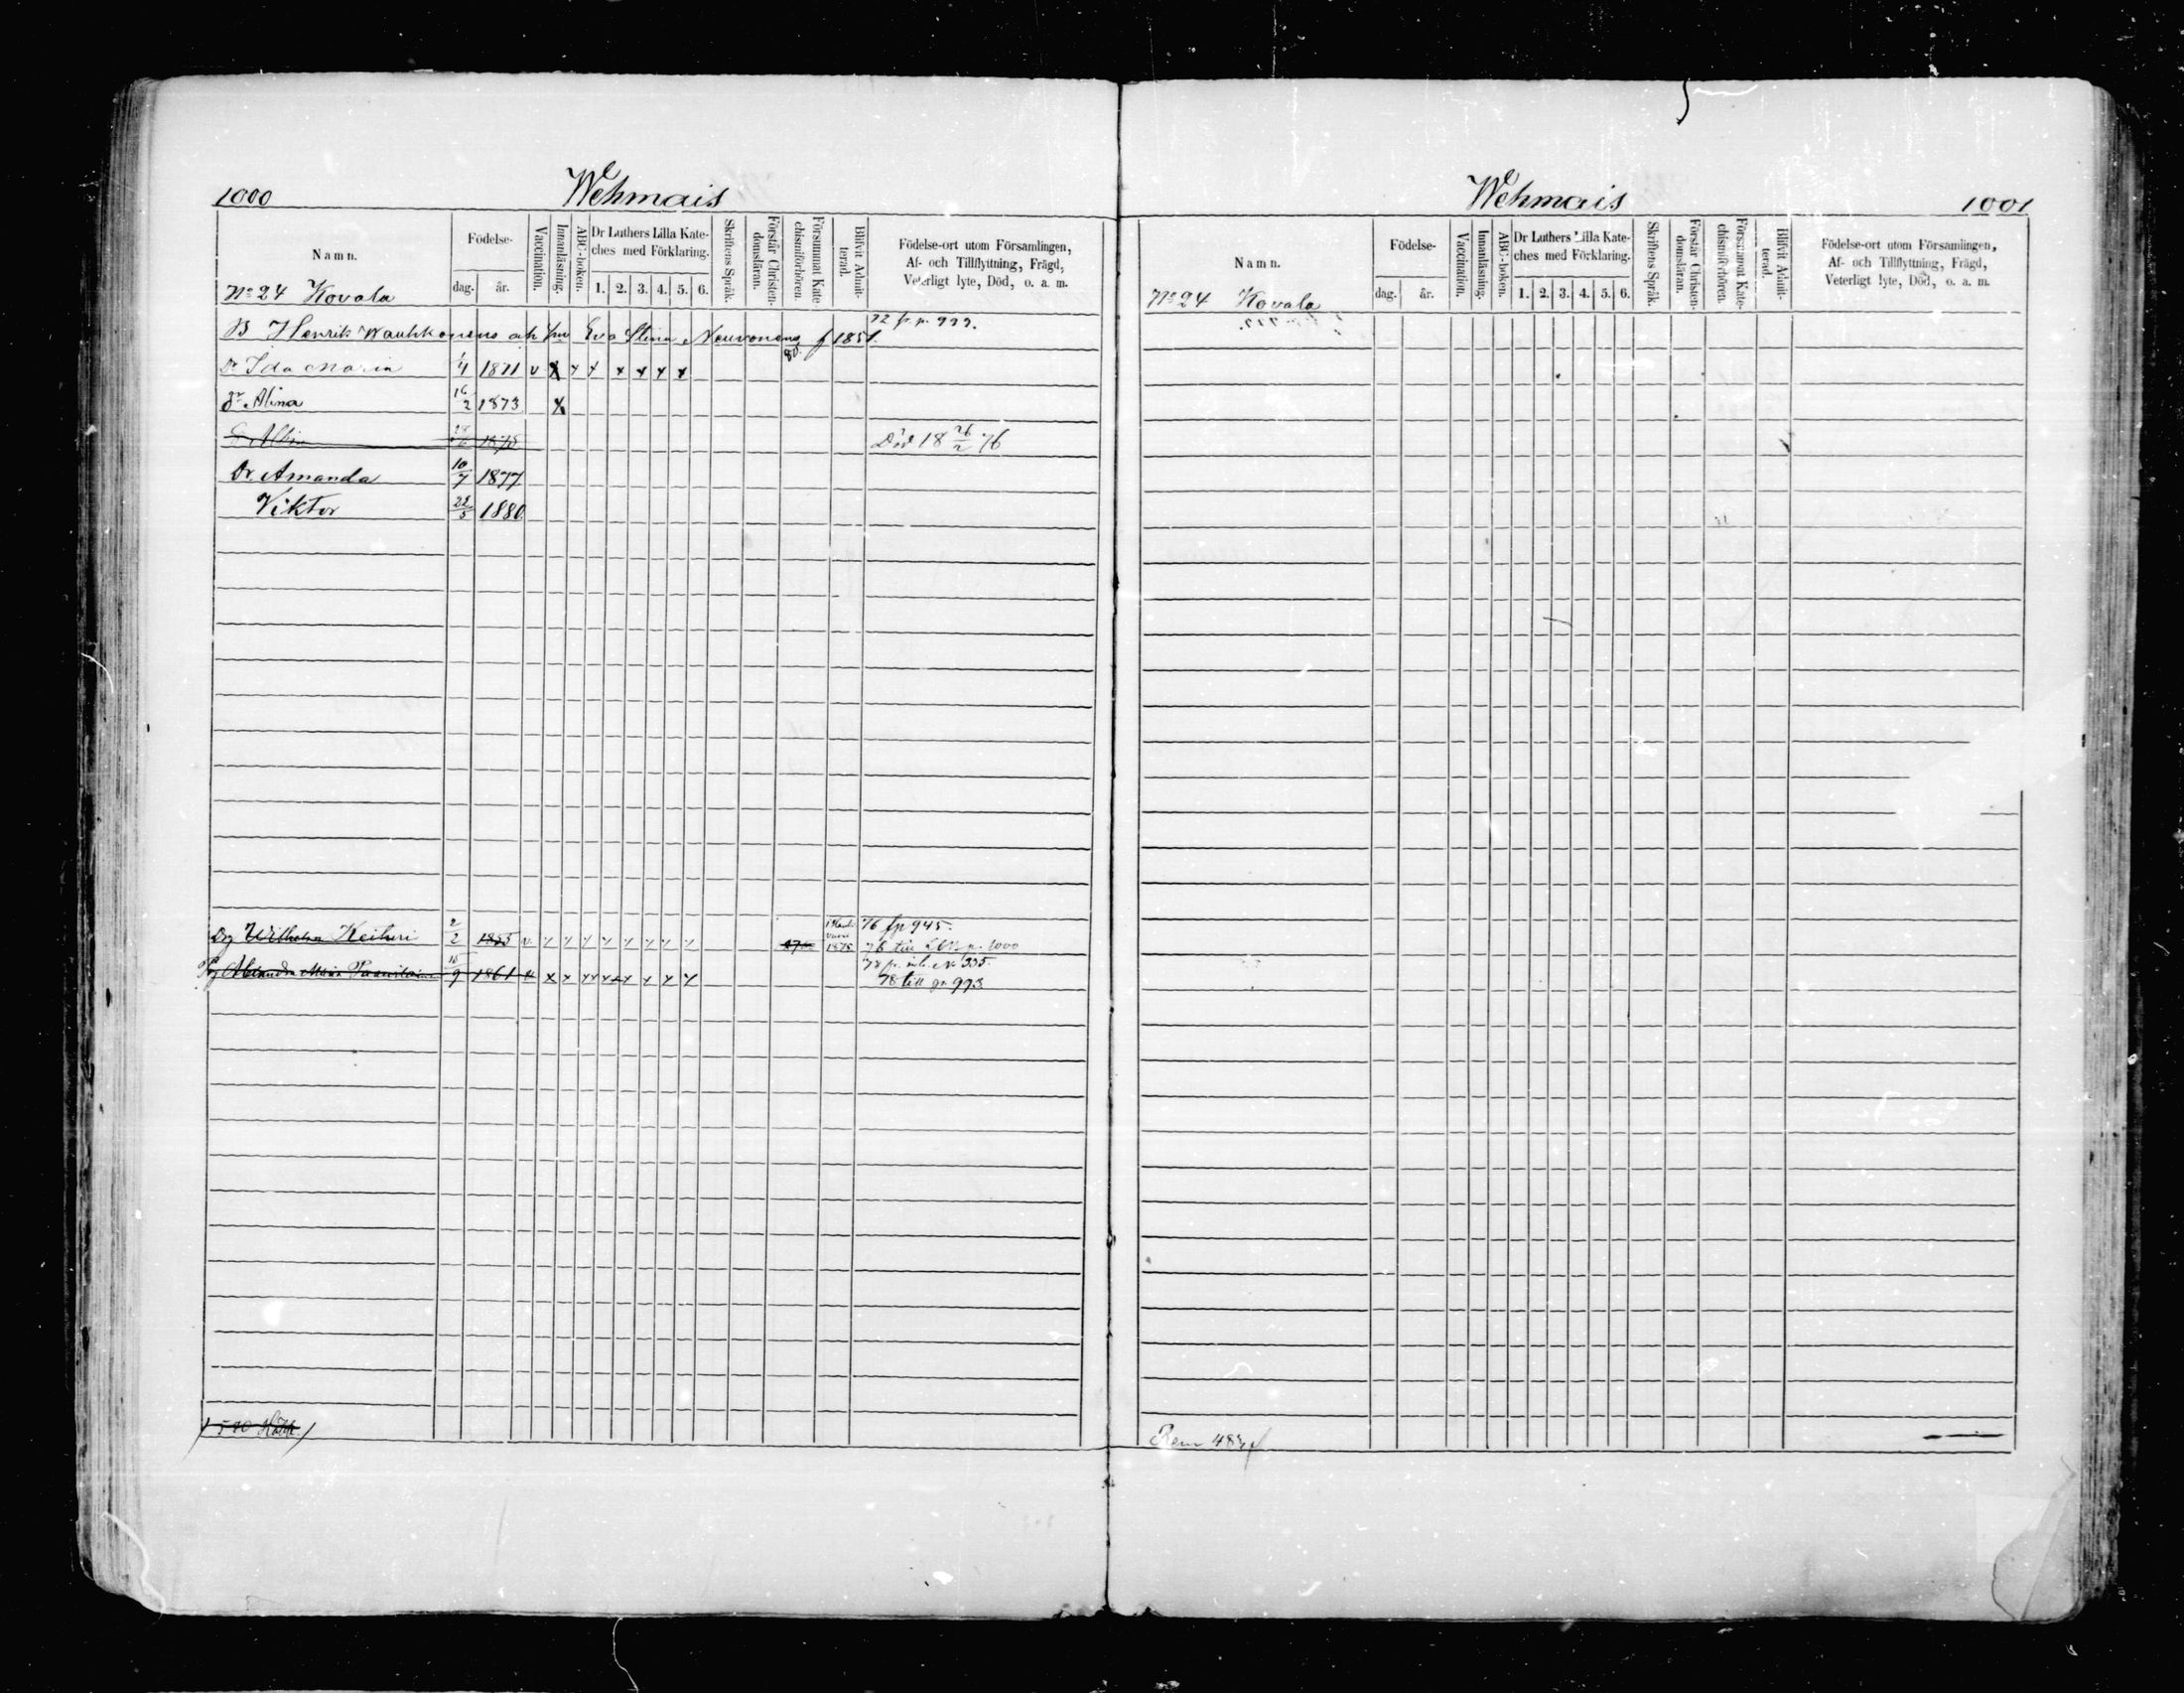 1000 Wehmais
Namn. Födelse- dag. år. Vaccination. Innanläsning. ABC-boken. Dr Luthers Lilla Kateches med Förklaring. 1. 2. 3. 4. 5. 6. Skriftens Språk. Förstår Christendomsläran. Försummat Katechismiförhören. Blifvit Admitterad. Födelse-ort utom Församlingen, Af- och Tillflyttning, Frägd, Veterligt lyte, Död, o. a. m.
No 24 Kovala
B Henrik Wauhkonens och hu Eva Stina Neuvonens f 1851. 72 fr p. 999.
80.
Dr Ida Maria 1/4 1871 v x x x x x x x
Dr Alina 16/2 1873 x
Albin 1875 Död 18 26/2 76
Dr Amanda 10/7 1877
Viktor 22/5 1880
Drg Wilhelm Keihäri 2/2 1855 v x x x x x x x x 1875 76 fr p 945.
p. 1000
Pig Maria 9 1861 x x x x x x x x x No 335.
78 till p. 993
Wehmais 1001
Namn. Födelse- dag. år. Vaccination. Innanläsning. ABC-boken. Dr Luthers Lilla Kateches med Förklaring. 1. 2. 3. 4. 5. 6. Skriftens Språk. Förstår Christendomsläran. Försummat Katechismiförhören. Blifvit Admitterad. Födelse-ort utom Församlingen, Af- och Tillflyttning, Frägd, Veterligt lyte, Död, o. a. m.
No 24 Kovala